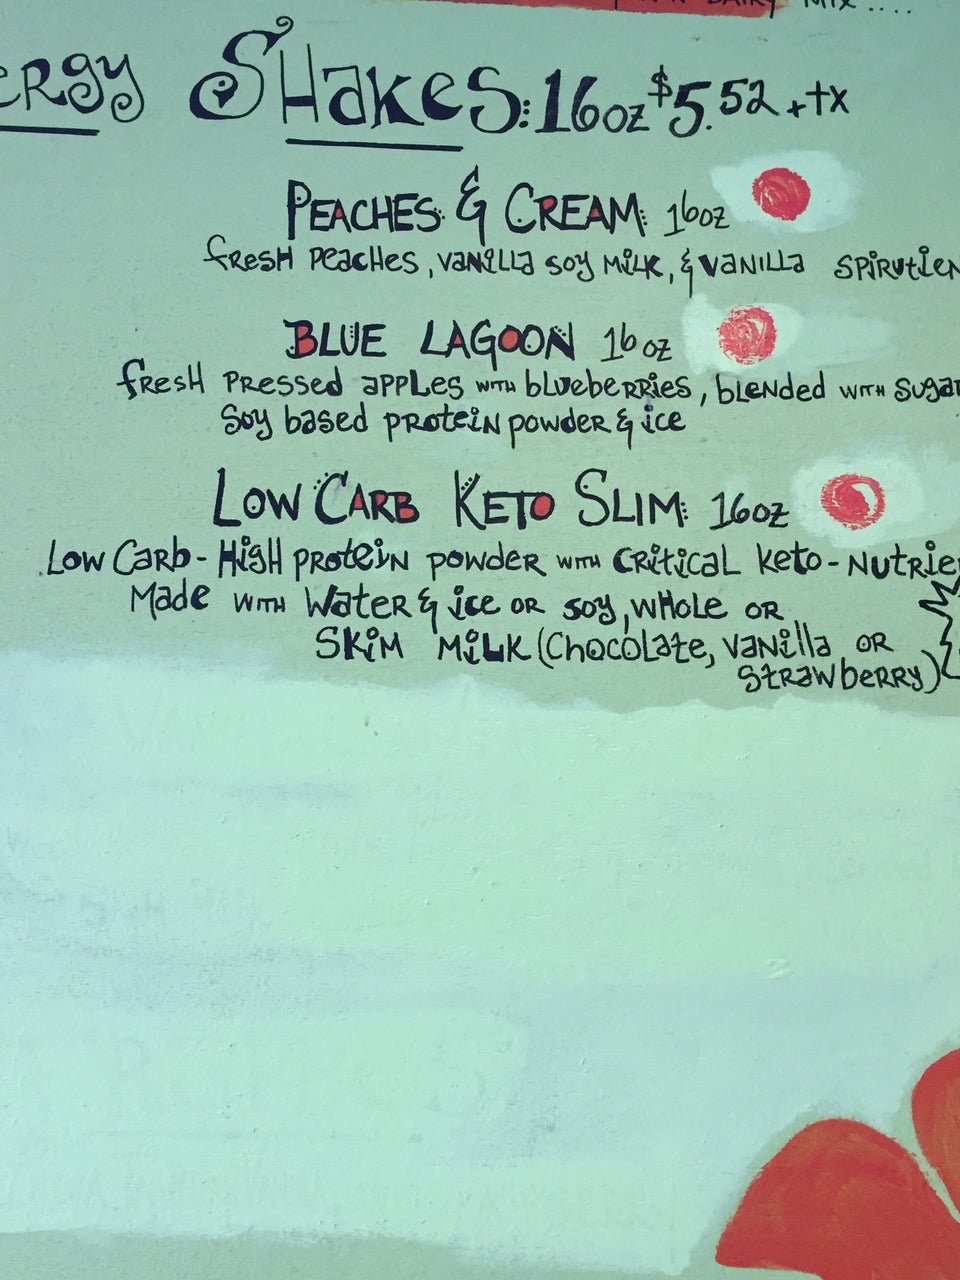 DAIRY MIX....
ERGY SHAKES: 16oz $5.52 + tx
PEACHES & CREAM: 16oz
fresh peaches, vanilla soy milk, & vanilla spirutein
BLUE LAGOON 16oz
fresh pressed apples with blueberries, blended with sugar
soy based protein powder & ice
LOW CARB KETO SLIM: 16oz
Low Carb-High protein powder with critical keto-nutrie
Made with water & ice or soy, whole or
skim milk (chocolate, vanilla or
strawberry)